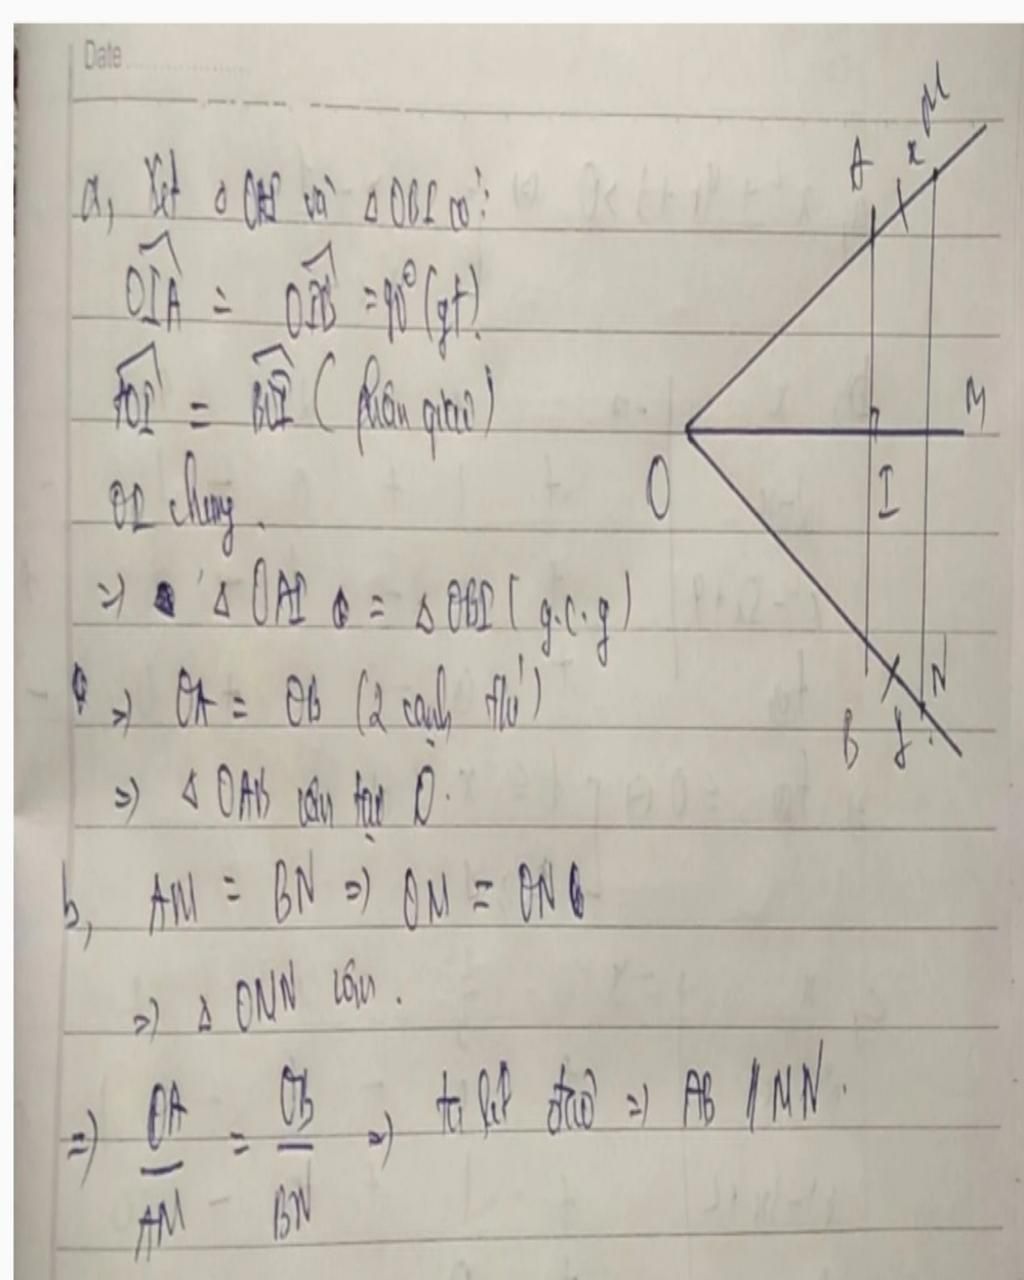 Date
a, Xét Δ OAI và Δ OBI có:
OIA = OIB = 90° (gt).
AOI = BOI ( phân giác)
OI chung.
=> Δ OAI = Δ OBI ( g.c.g )
=> OA = OB (2 cạnh t/ứ)
=> Δ OAB cân tại O.
b, AM = BN => OM = ON
=> Δ ONN cân.
=> OA/AM = OB/BN => ta lét đảo => AB // MN.
A x M
M
O
I
N
B y